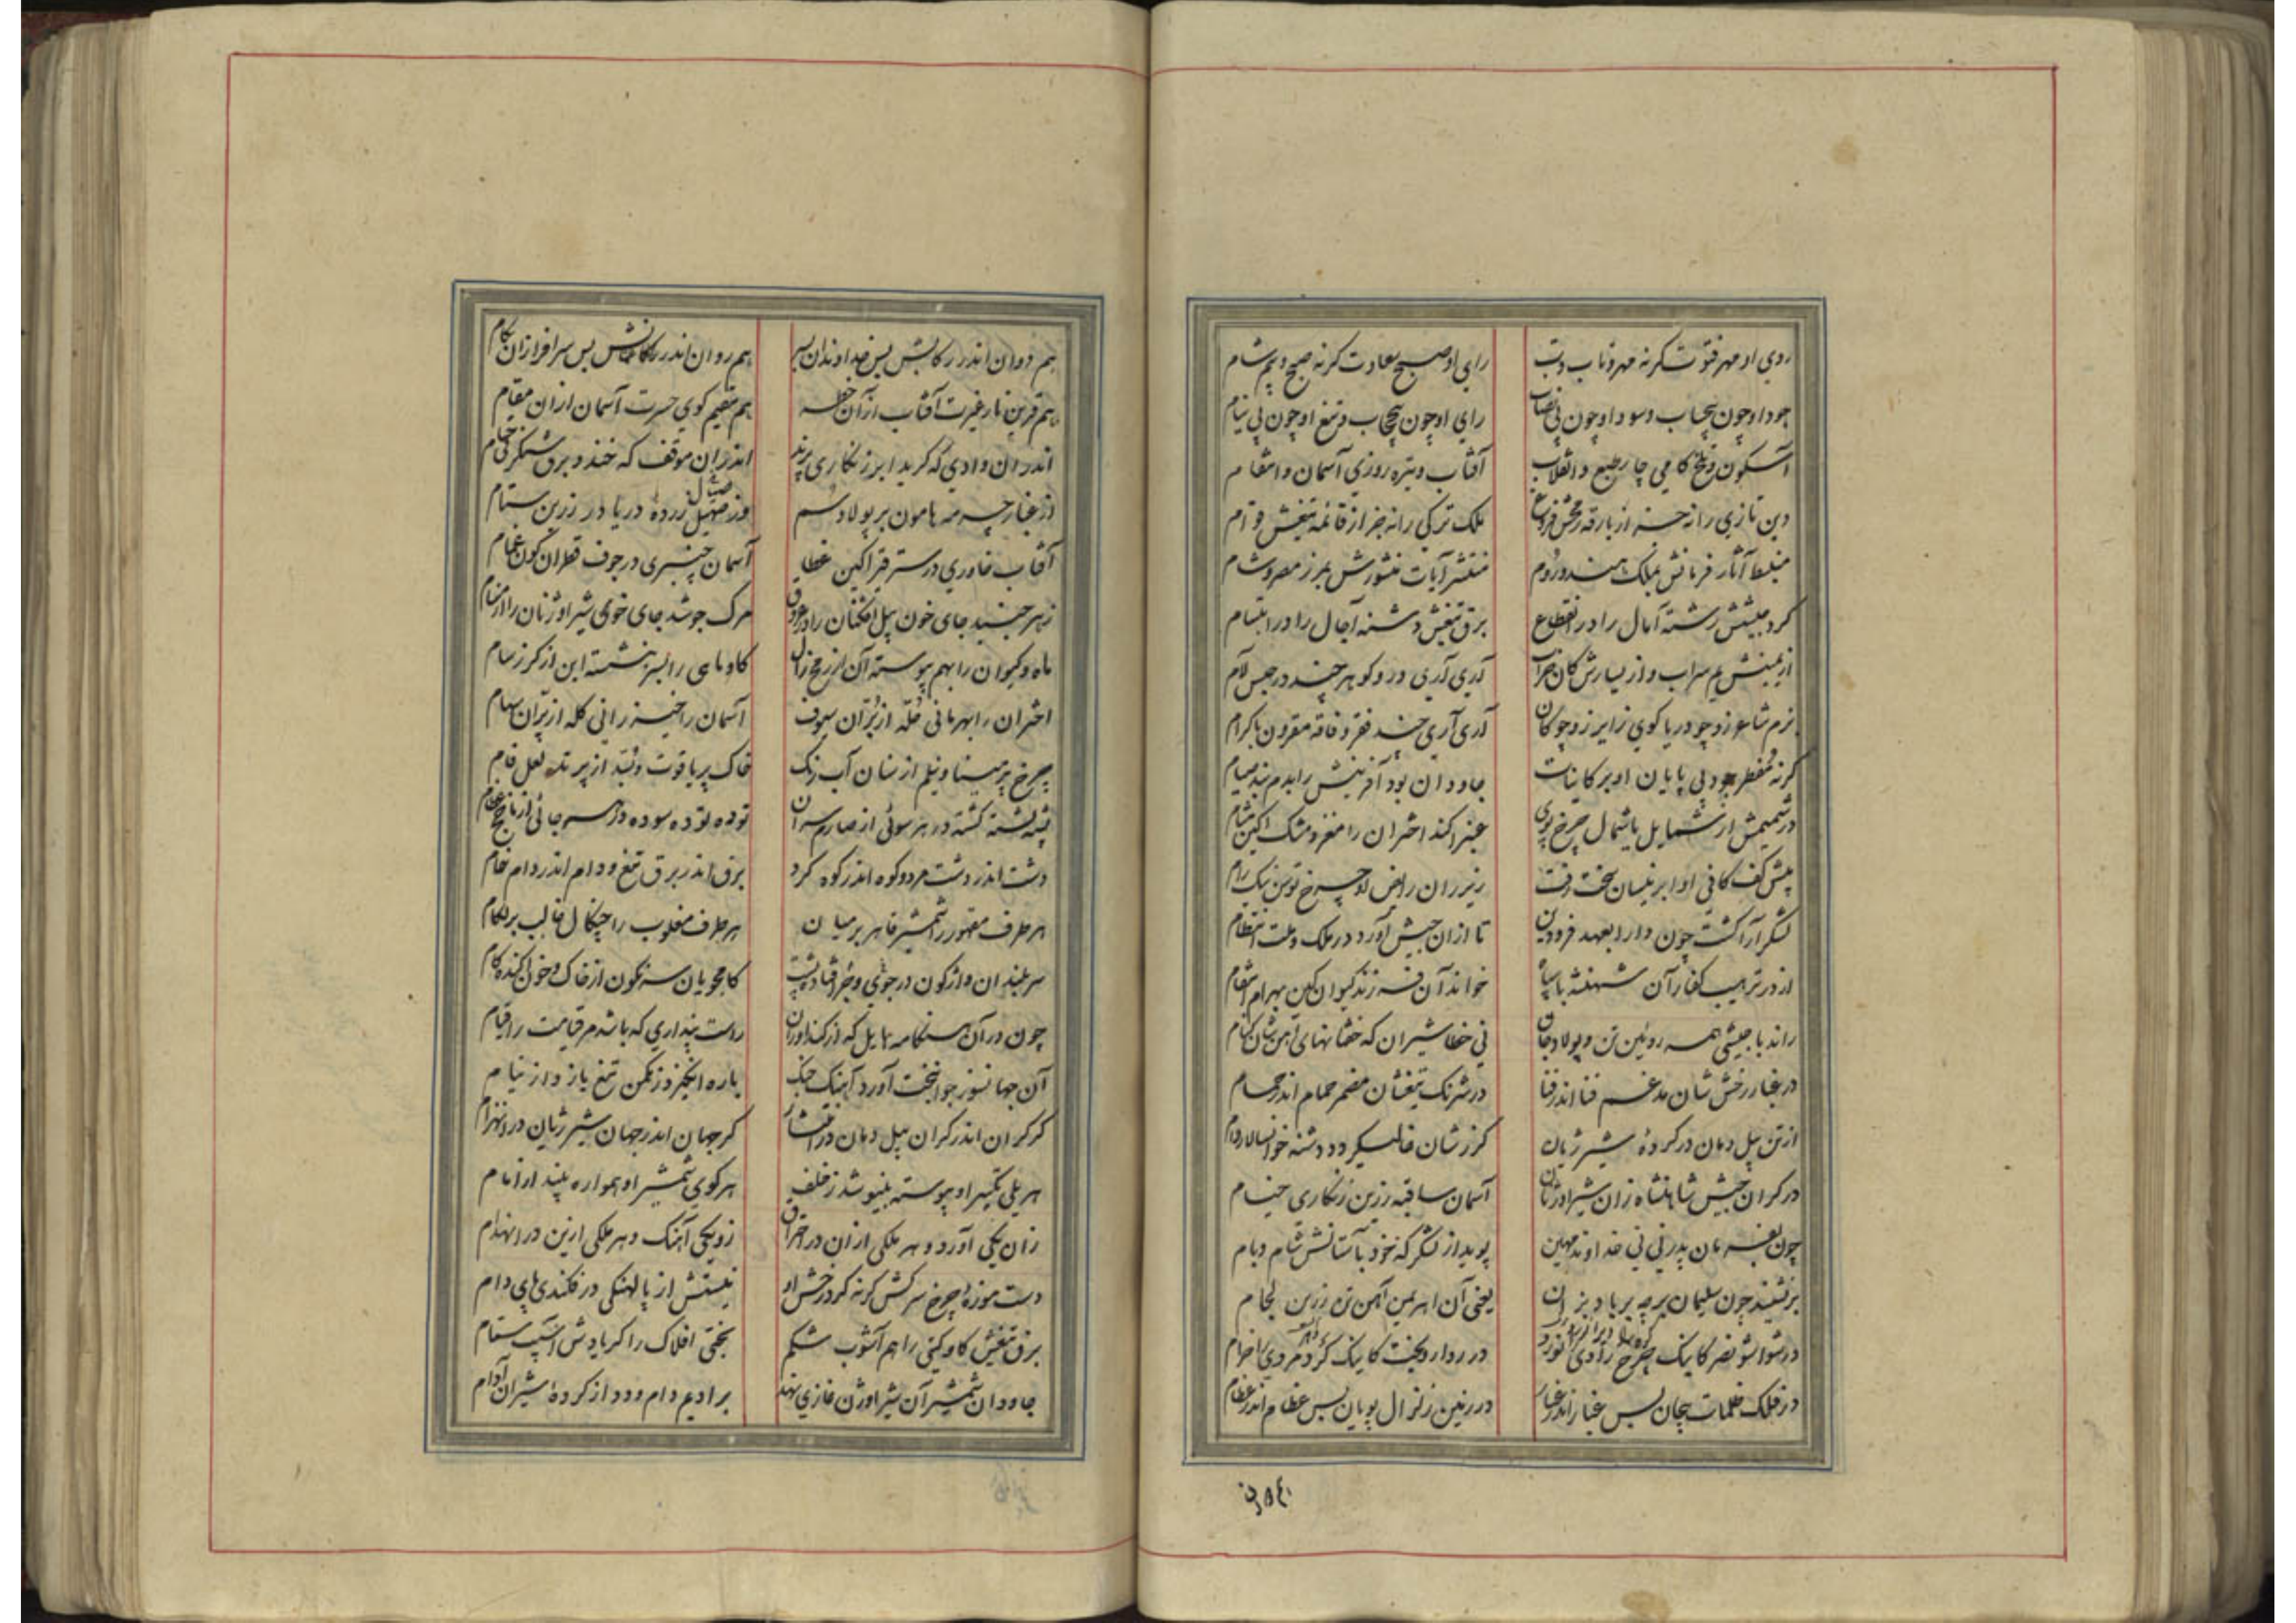 روی او مهر فتوت گر نه مهر و تاب و تب رای او صبح سعادت گر نه صبح و بیم شام
جود او چون بیحساب و سود او چون بی نصاب رای او چون بی حجاب و تیغ او چون بی نیام
آسکون و تلخ کامی چار طبع و انقلاب آفتاب و تیره روزی آسمان و انتقام
دین تازی را نه جز از بارقه رمحش فروغ ملک ترکی را نه جز از قائمه تیغش قوام
منبسط آثار فرمانش بملک هند و روم منتشر آیات منشورش بمرز مصر و شام
کرد رشته آمال را در انقطاع برق تیغش دشنه آجال را در ابتسام
از یمینش یم سراب و از یسارش کان خراب آری آری در و گوهر چند در حبس لآم
بزم شاعر زو چو دریا کوی زایر زو چو کان آری آری چند فقر و فاقه مقرون با کرام
گر نه مفطر جود بی پایان او بر کاینات جاودان بود آفرینش را بدم بند صیام
در شمیمش از شمایل با شمال چرخ پوی عنبر آکند اختران را مغز و مشک آکین مشام
پیش کف کافی او ابر نیسان سخت زفت زیر ران رایض او چرخ توسن نیک رام
لشکر آرا گشت چون دارا بعهد فرودین تا از آن جیش آورد در ملک و ملت انتظام
از در ترهیب کفار آن شهنشه با سپاه خواند آن فرزند کیوان کین بهرام انتقام
راند با جیشی همه روئین تن و پولاد خای نی خطا شیران که خفتانهای آهن شان کنام
در غبار رخش شان مدغم فنا اندر فنا در شرنگ تیغشان مضمر حمام اندر حمام
از تن پیل دمان در گرده شیر ژیان گرزشان فالیکر و دشنه خوانسالار دام
در گران جیش شاهنشاه زان شیر اوژنان آسمان سا قبه زرین زنگاری خیام
چون بفرمان پدر نی نی خداوند مهین پوید از لشکر که خود با آستانش شام و بام
بر نشیند چون سلیمان بر چه بر باد بزان یعنی آن اهریمن آهن تن زرین لجام
در ردا ر بخت کاینک
در فلک ظلمات پیچان بس غبار اندر غبار در زمین زلزال پویان بس عظام اندر عظام
هم دوان اندر رکابش بس خداوندان سر هم روان اندر رکابش بس سرافرازان بکام
هم قرین نار غیرت آفتاب از آن هم مقیم کوی حسرت آسمان از آن مقام
اندر آن وادی که گرید ابر زنگاری پرند اندر آن موقف که خندد برق شنگرفی حسام
از غبار چرمه هامون بر پولاد سم وز صهیل زرده دریا در زرین ستام
آفتاب خاوری در ستر قیر آکین غطا آسمان چنبری در جوف قطران گون غمام
زهر جنبد جای خون پیل افکنان را در عروق مرگ جوشد جای خوی شیر اوژنان را از مسام
ماه و کیوان را بهم پیوسته آن از رمح زال گاو و ماهی را بسر بنشسته این از گرز سام
اختران را بهرمانی حله از بران سیوف آسمان را خیزرانی کله از پران سهام
چرخ پر مینا و نیلم از سنان آب رنگ خاک پر یاقوت و بسد از پرند لعل فام
پشته پشته کشته در هر سوئی از صارم سران توده توده سوده در هر جائی از ناچخ عظام
دشت اندر دشت مرد و کوه اندر کوه گرد برق اندر برق تیغ و دام اندر دام خام
هر طرف مقهور را شمشیر قاهر بر میان هر طرف مغلوب را چنگال غالب بر لگام
سر بلندان واژگون در جوی و جر افتاده پست کامجویان سرنگون از خاک و خون آکنده کام
چون در آن هنگامه هایل که از گند اوران راست پنداری که باشد مر قیامت را قیام
آن جهانسوز جوانبخت آورد آهنگ جنگ باره انگیزد ز مکمن تیغ یازد از نیام
گر گران اندر گران پیل دمان در انتشار گر جهان اندر جهان شیر ژیان در انهزام
هر یلی تکبیر او پیوسته بنیوشد ز خلف هر گوی شمشیر او همواره بیند از امام
زان یکی آورد و هر ملکی از آن در احتراق زو یکی آهنگ و هر ملکی ازین در انهدام
دست موزه چرخ سرکش گر نه گرد رخش او نیستش از پالهنگی در فکندی پای دام
برق تیغش گاو گیتی را هم آشوب شکم بختی افلاک را گر باد سقام
جاودان شمشیر آن شیر اوژن غازی نهد بر ادیم دام و دد از گرده شیران ادام